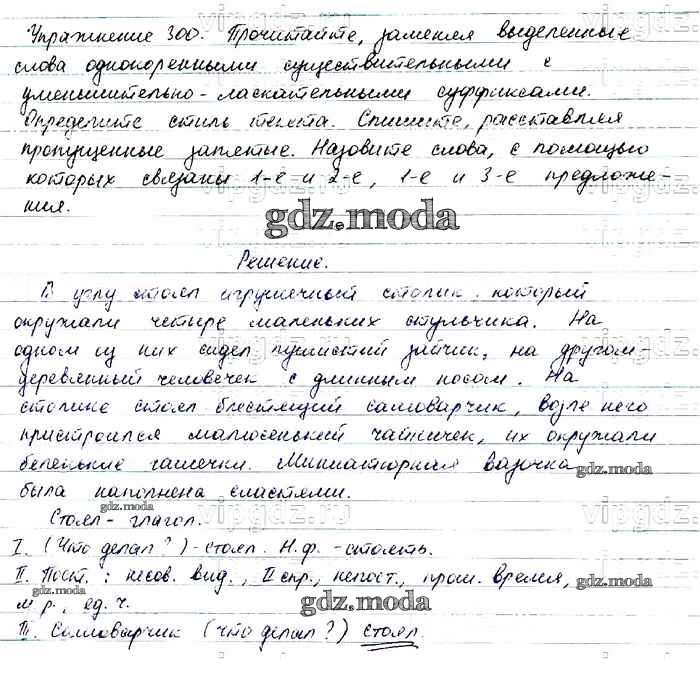 Упражнение 300. Прочитайте, заменяя выделенные
слова однокоренными существительными с
уменьшительно-ласкательными суффиксами.
Определите стиль текста. Спишите, расставляя
пропущенные запятые. Назовите слова, с помощью
которых связаны 1-е и 2-е, 1-е и 3-е предложе-
ния.
gdz.moda
Решение.
В углу стоял игрушечный столик, который
окружали четыре маленьких стульчика. На
одном из них сидел пушистый зайчик, на другом-
деревянный человечек с длинным носом. На
столике стоял блестящий самоварчик, возле него
пристроился малюсенький чайничек, их окружали
беленькие чашечки. Миниатюрная вазочка
gdz.moda
была наполнена сластями.
gdz.moda
vipgdz.ru
Стоял - глагол.
I. (Что делал?) - стоял. Н.ф. - стоять.
II. Пост.: несов. вид., II спр., непост., прош. время,
gdz.moda
м р., ед. ч.
gdz.moda
III. Самоварчик (что делал?) стоял.